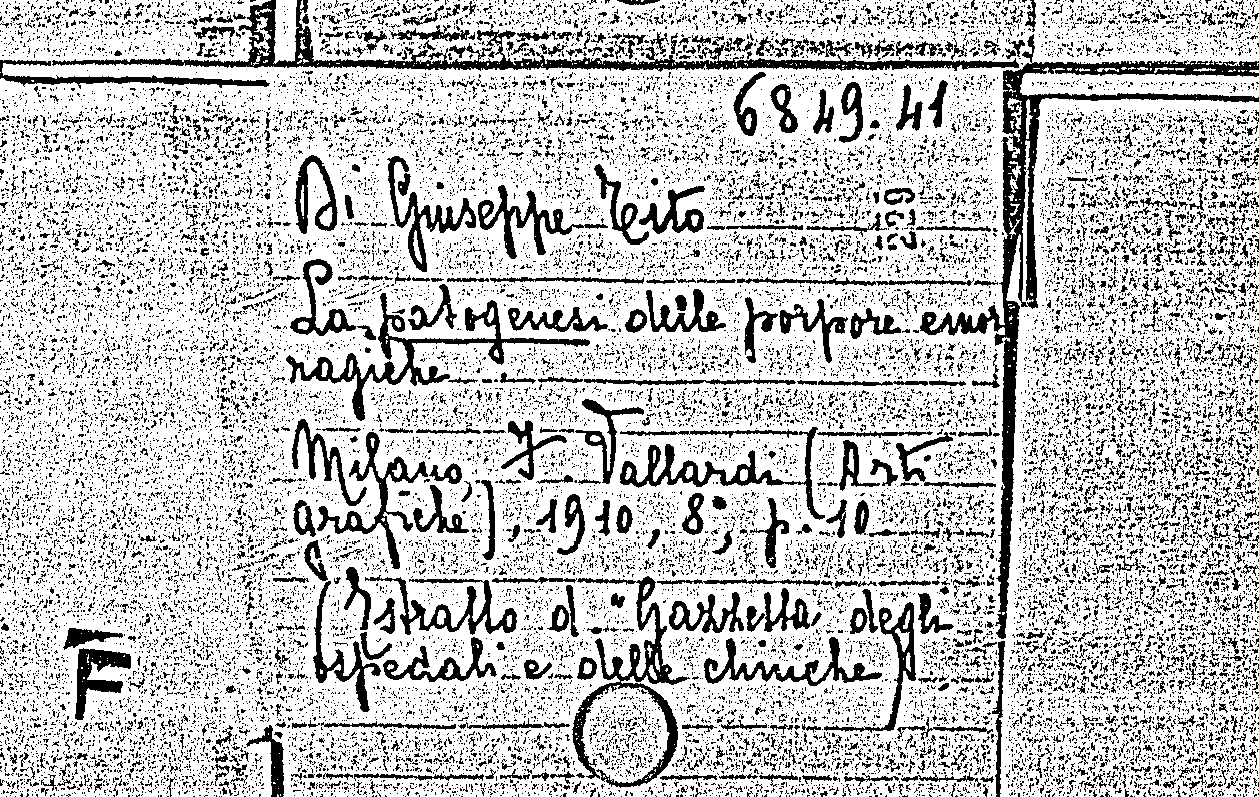 6849.41
Di Giuseppe Tito
La patogenesi delle porpore emor
ragiche
Milano, F. Vallardi (Arti
grafiche), 1910, 8°, p. 10
(Estratto d. "Gazzetta degli
ospedali e delle cliniche)
F